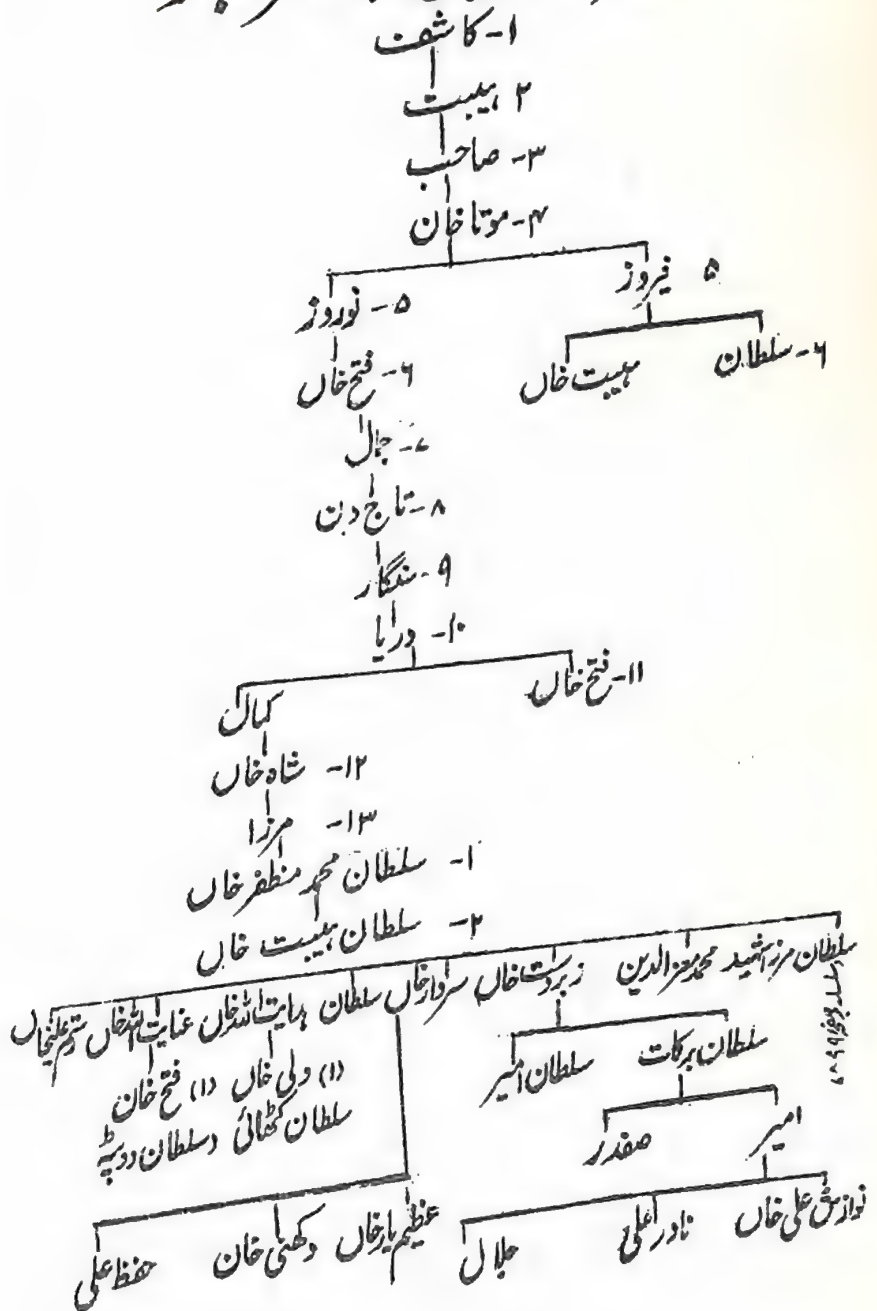 ۱- کاشف
۲ ہیبت
۳- صاحب
۴- موتا خان
۵ فیروز
۵- نوروز
۶- سلطان
ہیبت خاں
۶- فتح خاں
۷- جمال
۸- تاج دین
۹- سنگار
۱۰- دریا
۱۱- فتح خاں
کمال
۱۲- شاہ خاں
۱۳- مرزا
۱- سلطان محمد مظفر خاں
۲- سلطان ہیبت خاں
سلطان مرزا شہید محمد معز الدین زبردست خاں سردار خاں سلطان ہدایت اللہ خاں عنایت اللہ خاں رستم علیخاں
سلطان برکات
سلطان امیر
(۱) ولی خاں (۱) فتح خان
سلطان کٹھائی سلطان دوپٹہ
امیر
صفدر
نوازش علی خاں نادر علی جلال
عظیم یار خاں دکھنی خان حفظ علی